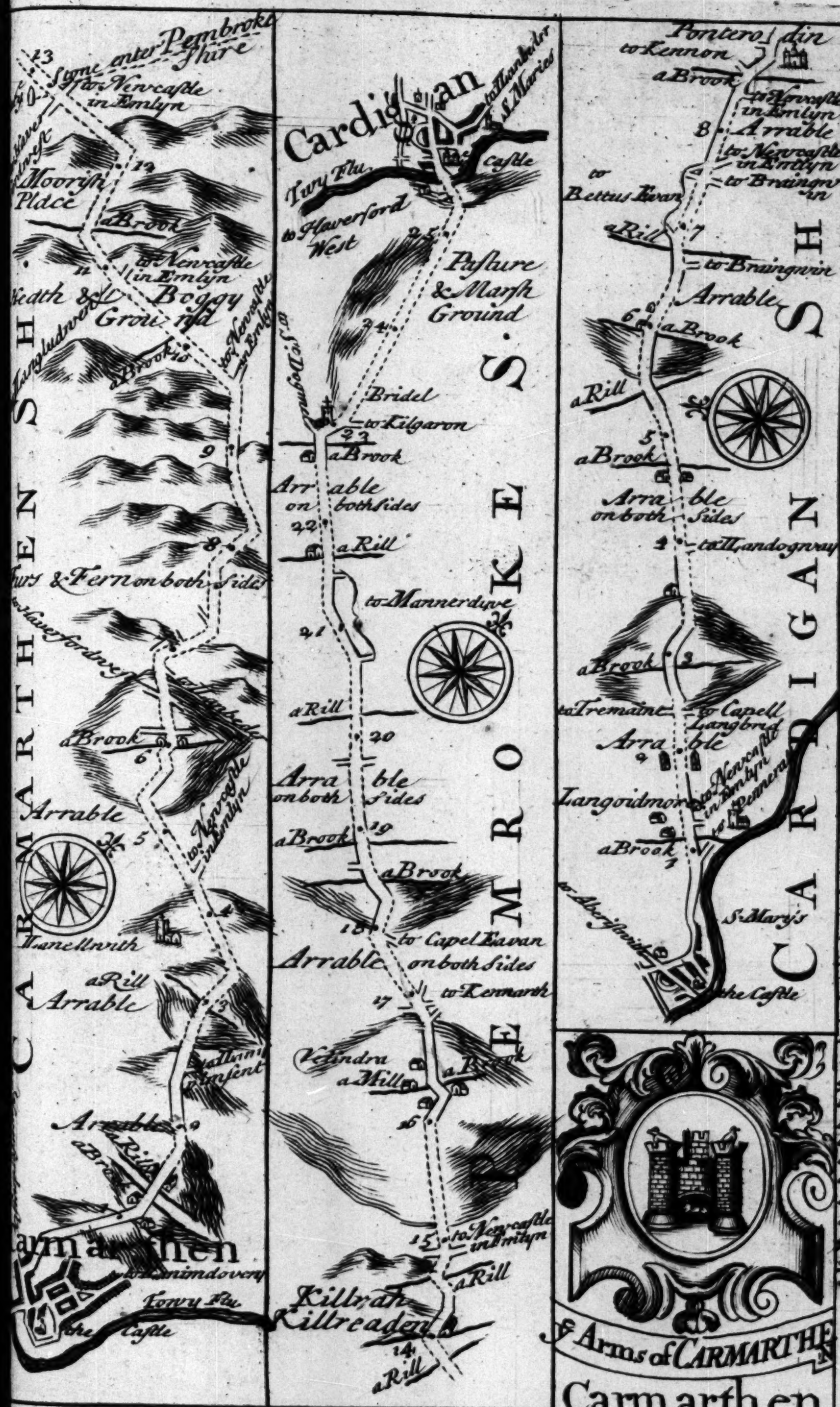 13
Stone enter Pembroke
Shire
to Newcastle
in Emlyn
12
Moorish
Place
a Brook
to Newcastle
in Emlyn
11
Heath & Boggy
Ground
to Newcastle
in Emlyn
Langludwen
a Brook
10
9
8
Furs & Fern on both Sides
to Haverfordwest
a Brook
6
Arrable
to Newcastle
in Emlyn
5
4
Lanellwith
a Rill
Arrable
3
Arrable
2
a Rill
a Brook
Carmarthen
Towy Flu
the Castle
CARMARTHEN SH.
Cardigan
S. Maries
Castle
Tivy Flu
to Haverford
West
25
Pasture
& Marsh
Ground
24
Bridel
to Kilgaron
23
a Brook
Arrable
on both sides
22
a Rill
to Mannerdive
21
a Rill
20
Arrable
on both Sides
19
a Brook
a Brook
18
to Capel Eavan
Arrable on both Sides
to Kennarth
17
Velindra
a Mill
a Brook
16
15
to Newcastle
in Emlyn
a Rill
Killrah
Killreaden
14
a Rill
PEMROKE S.
Ponterodin
to Kennon
a Brook
to Newcastle
in Emlyn
8
Arrable
to Newcastle
in Emlyn
to Braingwin
to
Bettus Evan
a Rill
7
to Braingwin
Arrable
6
a Brook
a Rill
5
a Brook
Arrable
on both Sides
4
to Llandogway
3
a Brook
to Tremaine
to Capell
Langbrig
Arrable
2
to Newcastle
in Emlyn
Langoidmore
a Brook
1
to Aberistwith
S. Mary's
the Castle
CARDIGAN SH
ye Arms of CARMARTHEN
Carmarthen